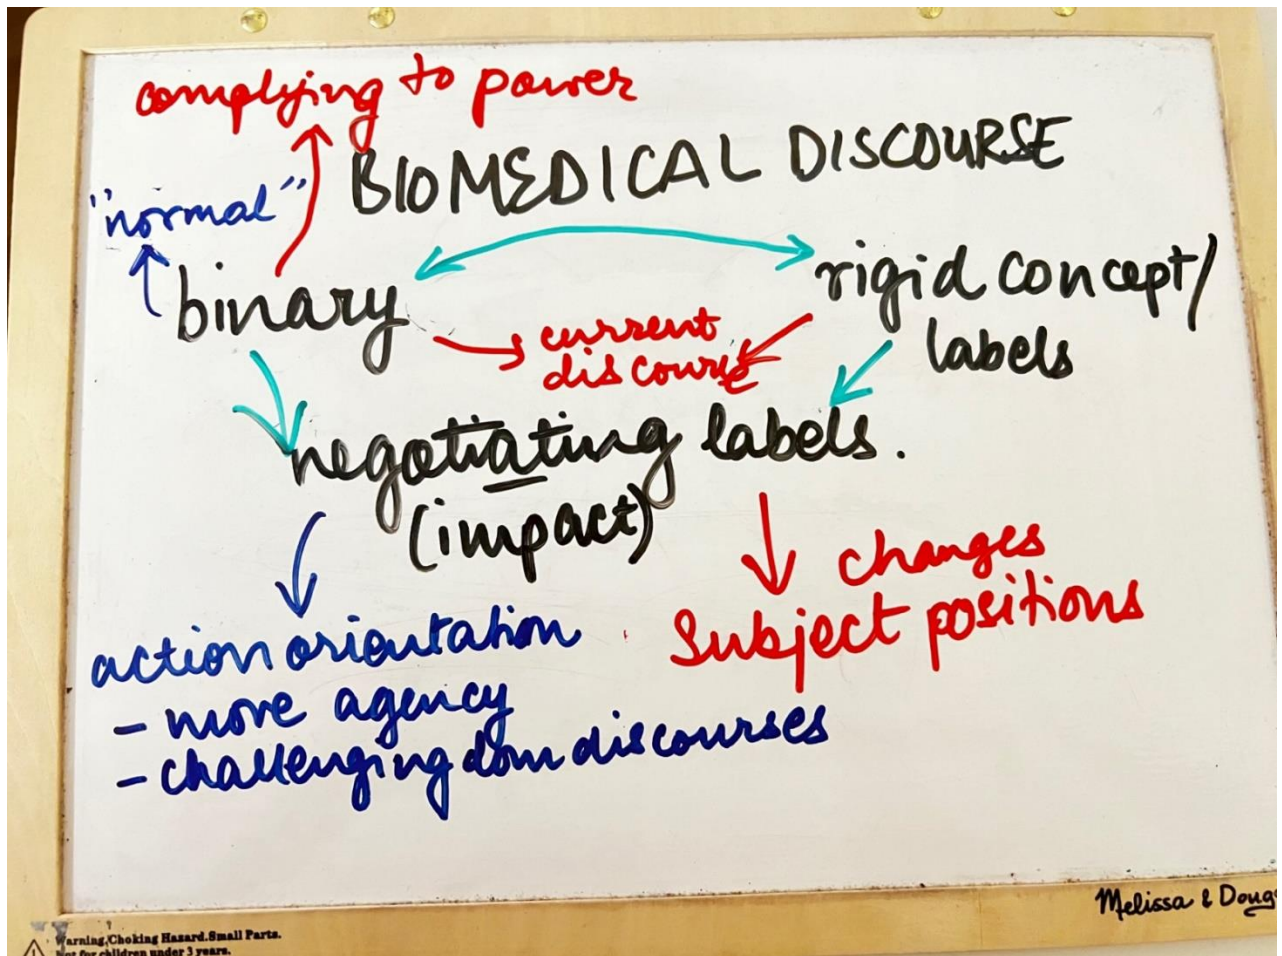 complying to power
BIOMEDICAL DISCOURSE
"normal"
binary
rigid concept/
labels
current
discourse
negotiating labels.
(impact)
changes
Subject positions
action orientation
- more agency
- challenging dom discourses
Melissa & Doug
Warning,Choking Hazard.Small Parts.
Not for children under 3 years.